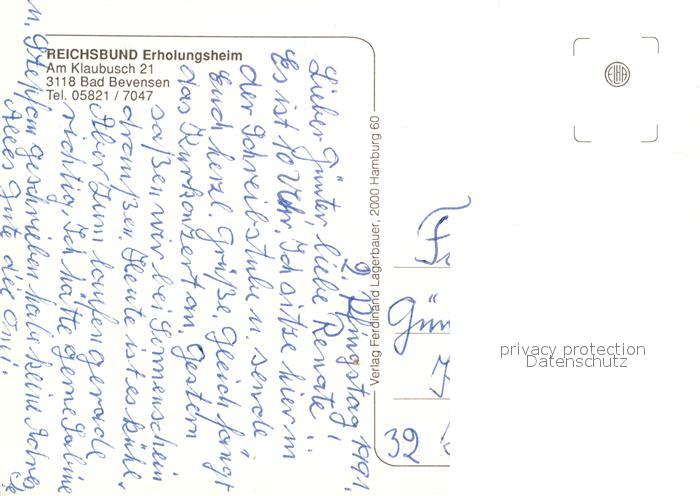 REICHSBUND Erholungsheim
Am Klaubusch 21
3118 Bad Bevensen
Tel. 05821 / 7047
Verlag Ferdinand Lagerbauer, 2000 Hamburg 60
2 Pfingstag 1991,
Lieber Günter liebe Renate!
Es ist 10 Uhr. Ich sitze hier in
der Schreibstube u. sende
Euch herzl. Grüße. Gleich fängt
das Kurkonzert an. Gestern
saßen wir bei Sonnenschein
draußen. Heute ist es kühl.
Aber zum laufen gerade
richtig. Ich hätte gerne Sabine
u. Stephan geschrieben habe keine Adre
Alles Gute die Omi.
Gün
39
EIHA
privacy protection
Datenschutz